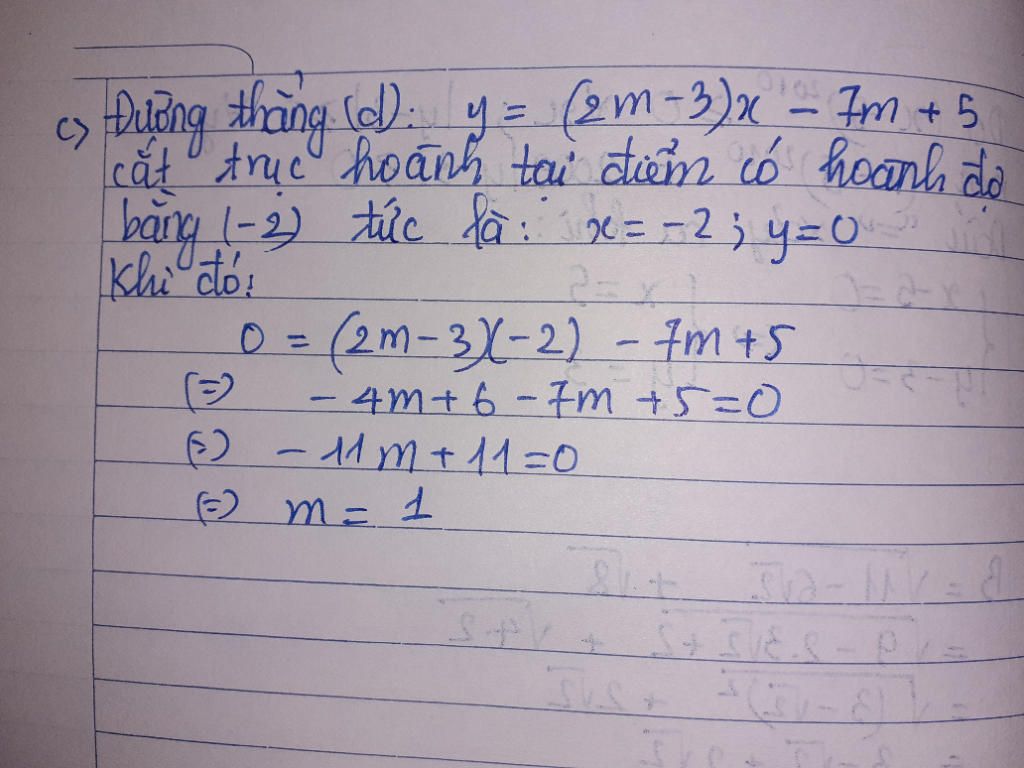 c) Đường thẳng (d): y = (2m-3)x - 7m + 5
cắt trục hoành tại điểm có hoành độ
bằng (-2) tức là: x = -2 ; y = 0
Khi đó:
0 = (2m-3)(-2) - 7m + 5
(=) -4m + 6 - 7m + 5 = 0
(=) -11m + 11 = 0
(=) m = 1